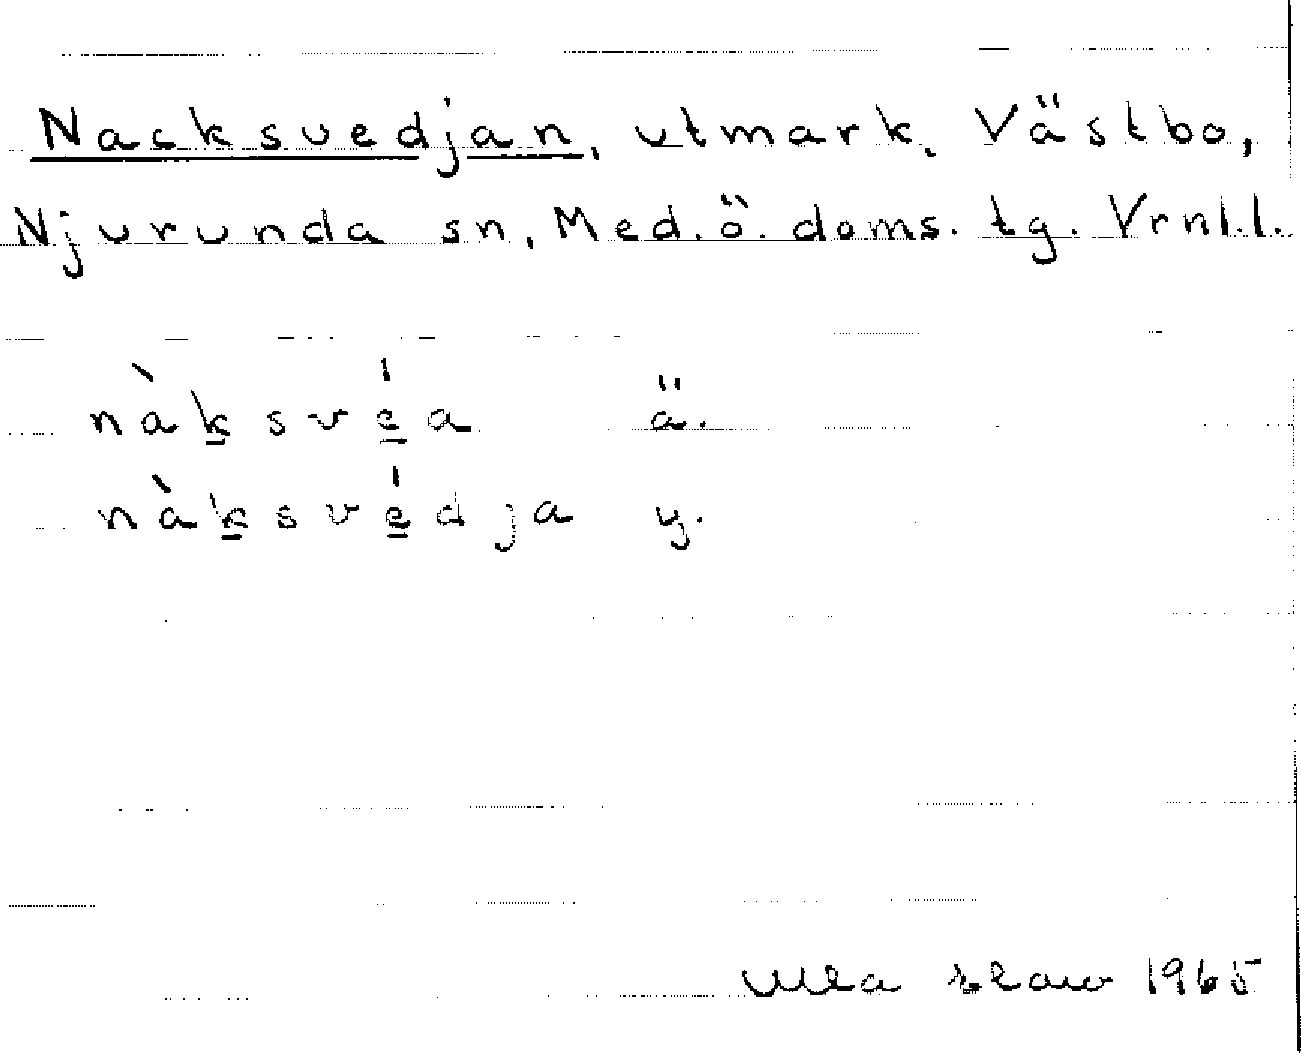 Nacksvedjan, utmark, Västbo,
Njurunda sn, Med. ö. doms. tg. Vrnl.l.
nàksvéa ä.
nàksvédja y.
Ulla 1965